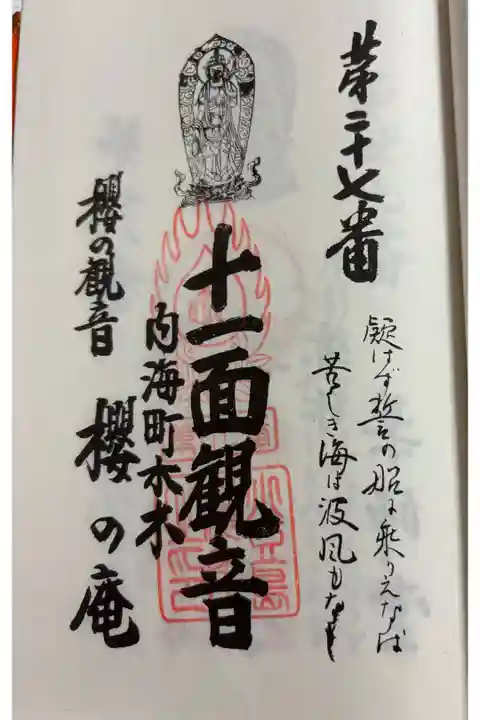 第二十七番
疑はず誓の船に乗りえなば
苦しき海は波風もなし
十一面観音
内海町木木
櫻の観音
櫻の庵